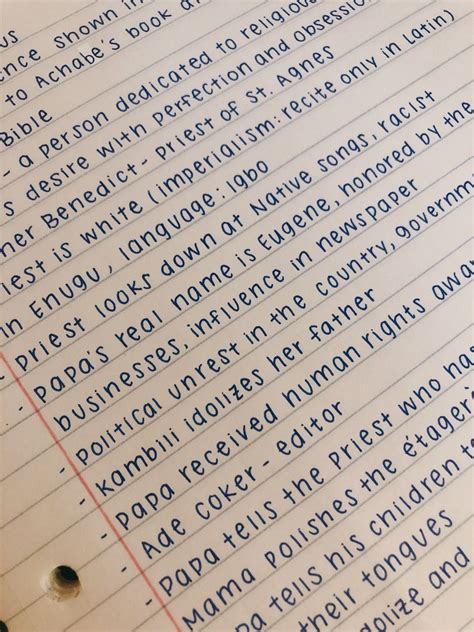 ence shown in
to Achabe's book a
Bible
- a person dedicated to religious
s desire with perfection and obsession
her Benedict - Priest of St. Agnes
iest is white (imperialism: recite only in Latin)
in Enugu, language: Igbo
- Priest looks down at Native songs, racist
- Papa's real name is Eugene, honored by the
businesses, influence in newspaper
- Political unrest in the country, governm
- Kambili idolizes her father
- Papa received human rights awa
- Ade Coker - editor
- Papa tells the Priest who has
Mama polishes the étagèr
pa tells his children t
their tongues
dolize and